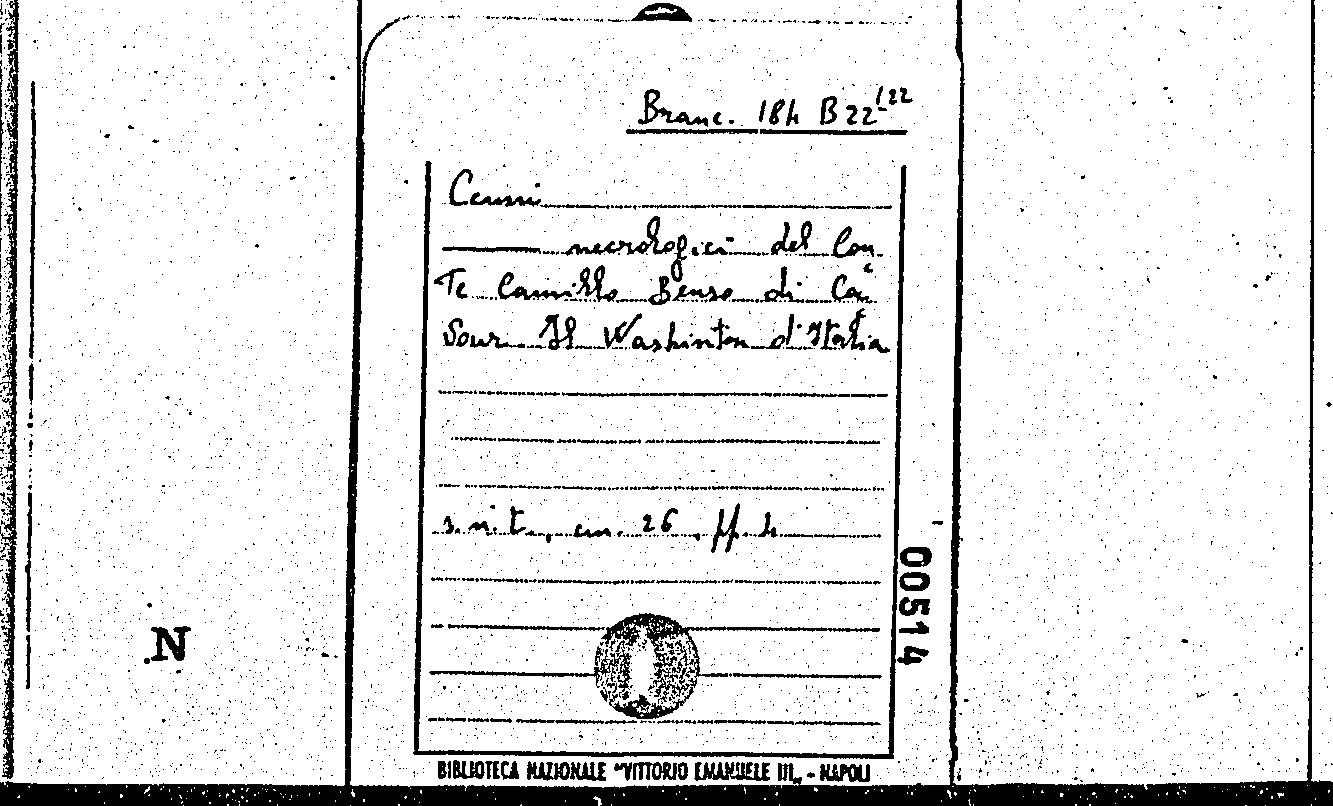 Branc. 184 B 22/122
Cenni
necrologici del Con
Te Camillo Benso di Ca
Vour. Il Washinton d'Italia
s.n.t., cm. 26, pp. 4
00514
N
BIBLIOTECA NAZIONALE "VITTORIO EMANUELE III„ - NAPOLI